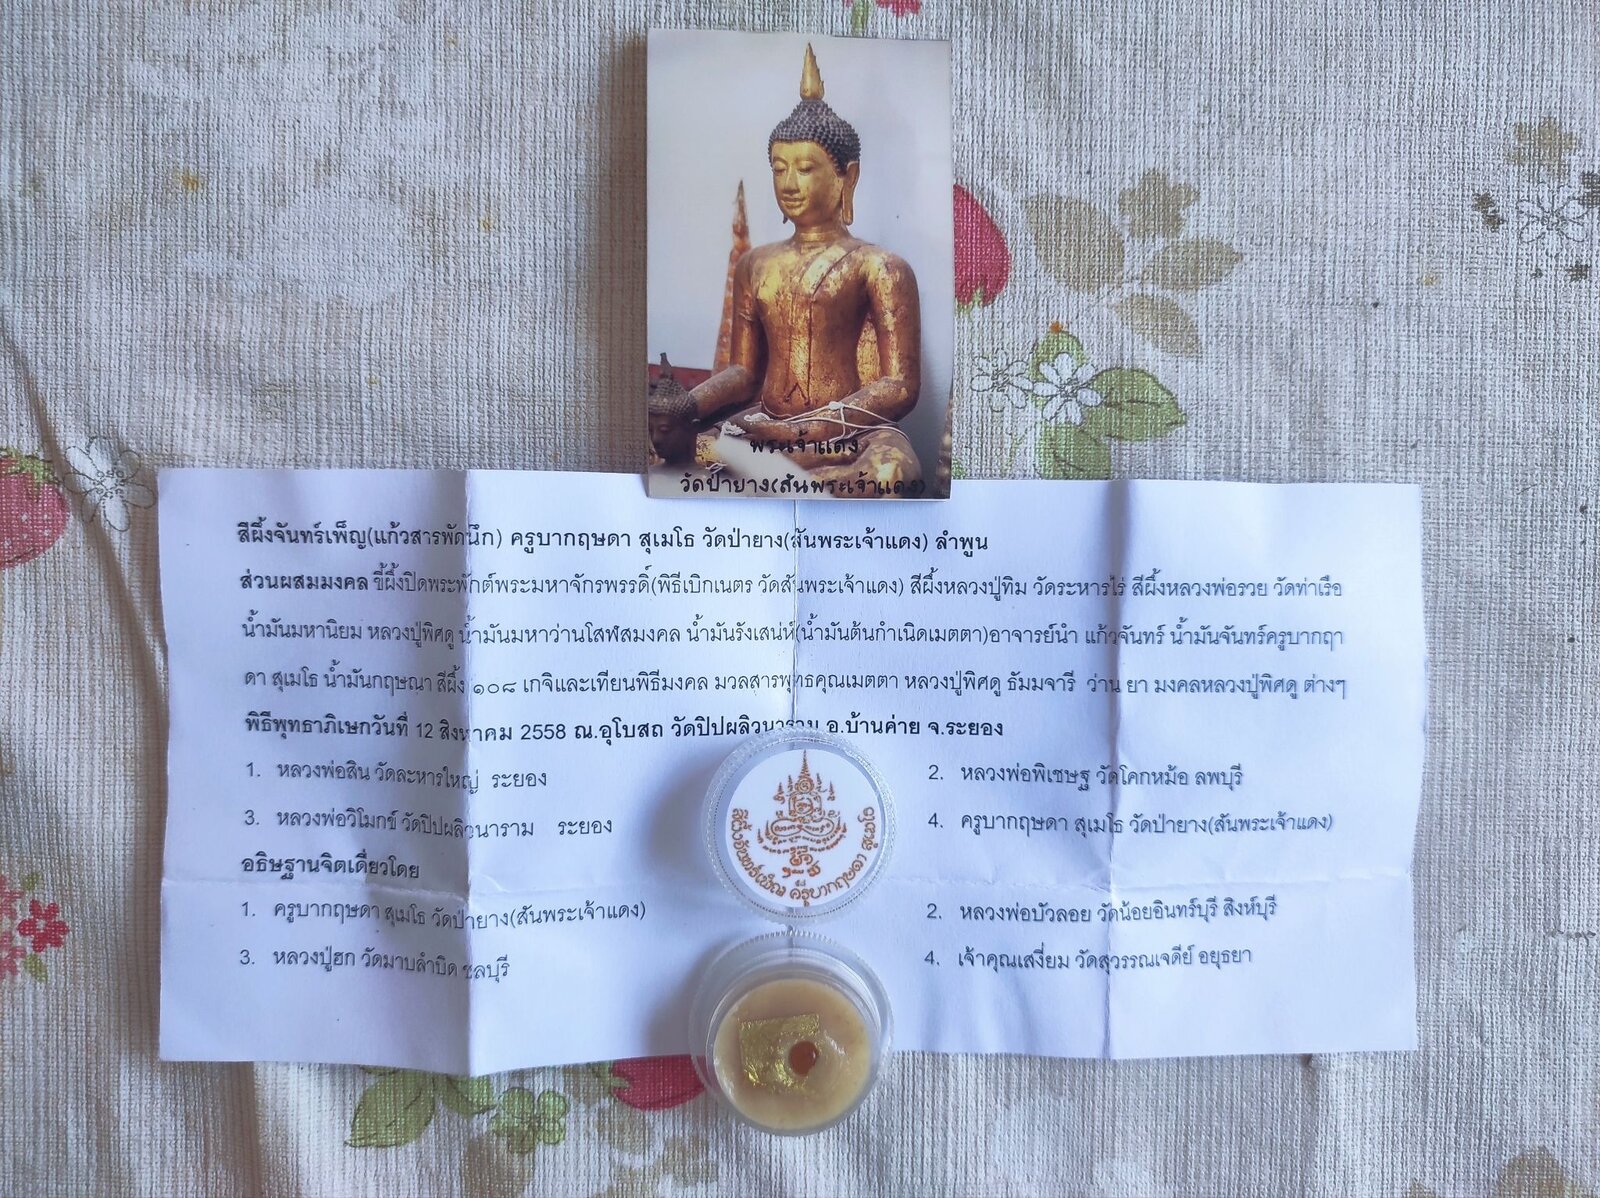 พระเจ้าแดง
วัดป่ายาง(สันพระเจ้าแดง)
สีผึ้งจันทร์เพ็ญ(แก้วสารพัดนึก) ครูบากฤษดา สุเมโธ วัดป่ายาง(สันพระเจ้าแดง) ลำพูน
ส่วนผสมมงคล ขี้ผึ้งปิดพระพักต์พระมหาจักรพรรดิ์(พิธีเบิกเนตร วัดสันพระเจ้าแดง) สีผึ้งหลวงปู่ทิม วัดระหารไร่ สีผึ้งหลวงพ่อรวย วัดท่าเรือ
น้ำมันมหานิยม หลวงปู่พิศดู น้ำมันมหาว่านโสฬสมงคล น้ำมันรังเสน่ห์(น้ำมันต้นกำเนิดเมตตา)อาจารย์นำ แก้วจันทร์ น้ำมันจันทร์ครูบากฤา
ดา สุเมโธ น้ำมันกฤษณา สีผึ้ง ๑๐๘ เกจิและเทียนพิธีมงคล มวลสารพุทธคุณเมตตา หลวงปู่พิศดู ธัมมจารี ว่าน ยา มงคลหลวงปู่พิศดู ต่างๆ
พิธีพุทธาภิเษกวันที่ 12 สิงหาคม 2558 ณ.อุโบสถ วัดปิปผลิวนาราม อ.บ้านค่าย จ.ระยอง
1. หลวงพ่อสิน วัดละหารใหญ่ ระยอง
2. หลวงพ่อพิเชษฐ วัดโคกหม้อ ลพบุรี
3. หลวงพ่อวิโมกข์ วัดปิปผลิวนาราม ระยอง
4. ครูบากฤษดา สุเมโธ วัดป่ายาง(สันพระเจ้าแดง)
อธิษฐานจิตเดี่ยวโดย
1. ครูบากฤษดา สุเมโธ วัดป่ายาง(สันพระเจ้าแดง)
2. หลวงพ่อบัวลอย วัดน้อยอินทร์บุรี สิงห์บุรี
3. หลวงปู่ฮก วัดมาบลำบิด ชลบุรี
4. เจ้าคุณเสงี่ยม วัดสุวรรณเจดีย์ อยุธยา
สีผึ้งจันทร์เพ็ญ ครูบากฤษดา สุเมโธ